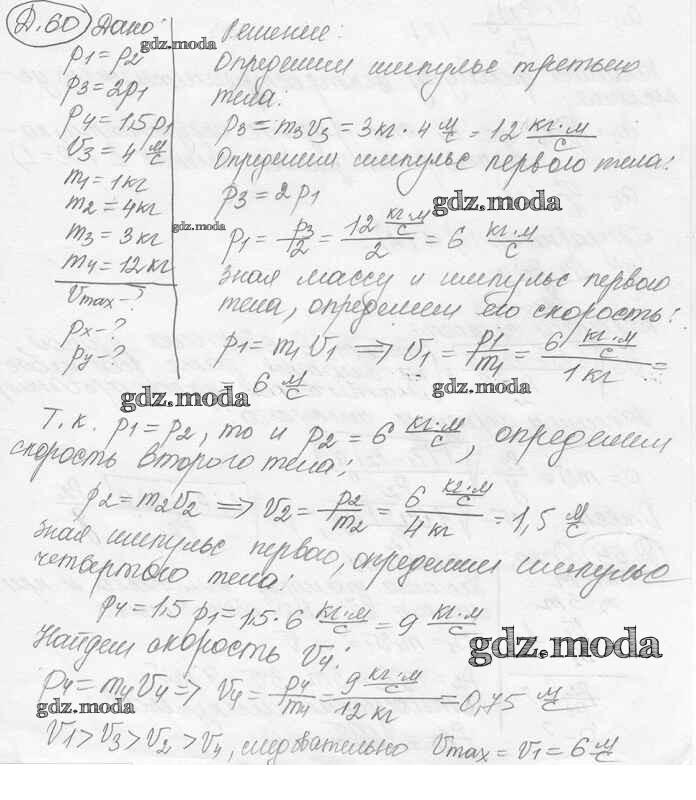 Д.60 Дано:
p1 = p2
p3 = 2p1
p4 = 1,5p1
v3 = 4 м/с
m1 = 1кг
m2 = 4кг
m3 = 3кг
m4 = 12кг
vmax - ?
px - ?
py - ?
Решение:
Определим импульс третьего
тела.
p3 = m3v3 = 3кг · 4 м/с = 12 кг·м/с
Определим импульс первого тела:
p3 = 2p1
p1 = p3/2 = 12 кг·м/с / 2 = 6 кг·м/с
Зная массу и импульс первого
тела, определяем его скорость:
p1 = m1v1 => v1 = p1/m1 = 6 кг·м/с / 1кг =
6 м/с
Т.к. p1 = p2, то и p2 = 6 кг·м/с, определим
скорость второго тела:
p2 = m2v2 => v2 = p2/m2 = 6 кг·м/с / 4кг = 1,5 м/с
Зная импульс первого, определим импульс
четвертого тела:
p4 = 1,5 p1 = 1,5 · 6 кг·м/с = 9 кг·м/с
Найдем скорость v4:
p4 = m4v4 => v4 = p4/m4 = 9 кг·м/с / 12кг = 0,75 м/с
v1 > v3 > v2 > v4, следовательно vmax = v1 = 6 м/с
gdz.moda
gdz.moda
gdz.moda
gdz.moda
gdz.moda
gdz.moda
gdz.moda